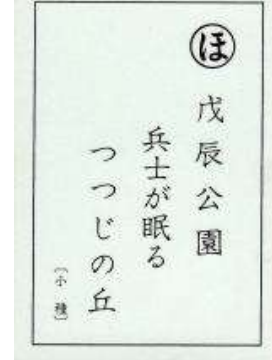 ほ
戊辰公園
兵士が眠る
つつじの丘
（小種）